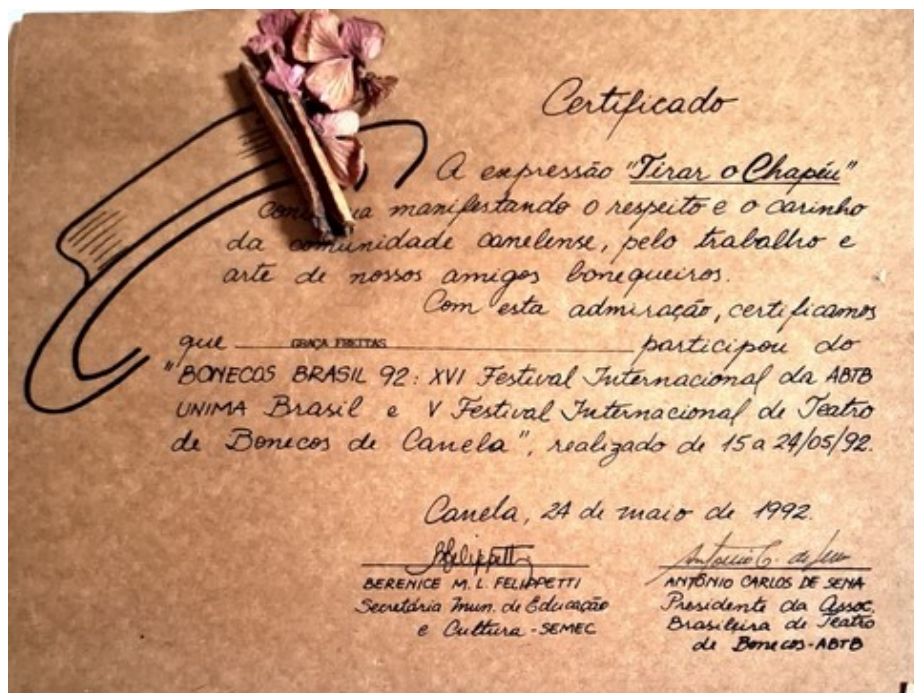 Certificado
A expressão "Tirar o Chapéu"
manifestando o respeito e o carinho
da comunidade canelense, pelo trabalho e
arte de nossos amigos bonequeiros.
Com esta admiração, certificamos
que GRAÇA FREITAS participou do
"BONECOS BRASIL 92: XVI Festival Internacional da ABTB
UNIMA Brasil e V Festival Internacional de Teatro
de Bonecos de Canela", realizado de 15 a 24/05/92.
Canela, 24 de maio de 1992.
BERENICE M. L. FELIPPETTI
Secretária Mun. de Educação
e Cultura - SEMEC
ANTÔNIO CARLOS DE SENA
Presidente da Assoc.
Brasileira de Teatro
de Bonecos-ABTB